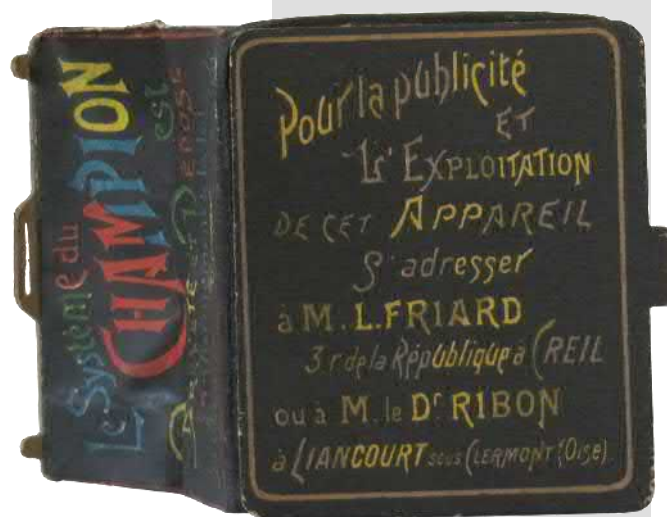 Le Système du
CHAMPION
est
DÉPOSÉ
Pour la publicité
ET
L'EXPLOITATION
DE CET APPAREIL
S'adresser
à M. L. FRIARD
3 r de la République à CREIL
ou à M. le Dr RIBON
à LIANCOURT sous CLERMONT (Oise)